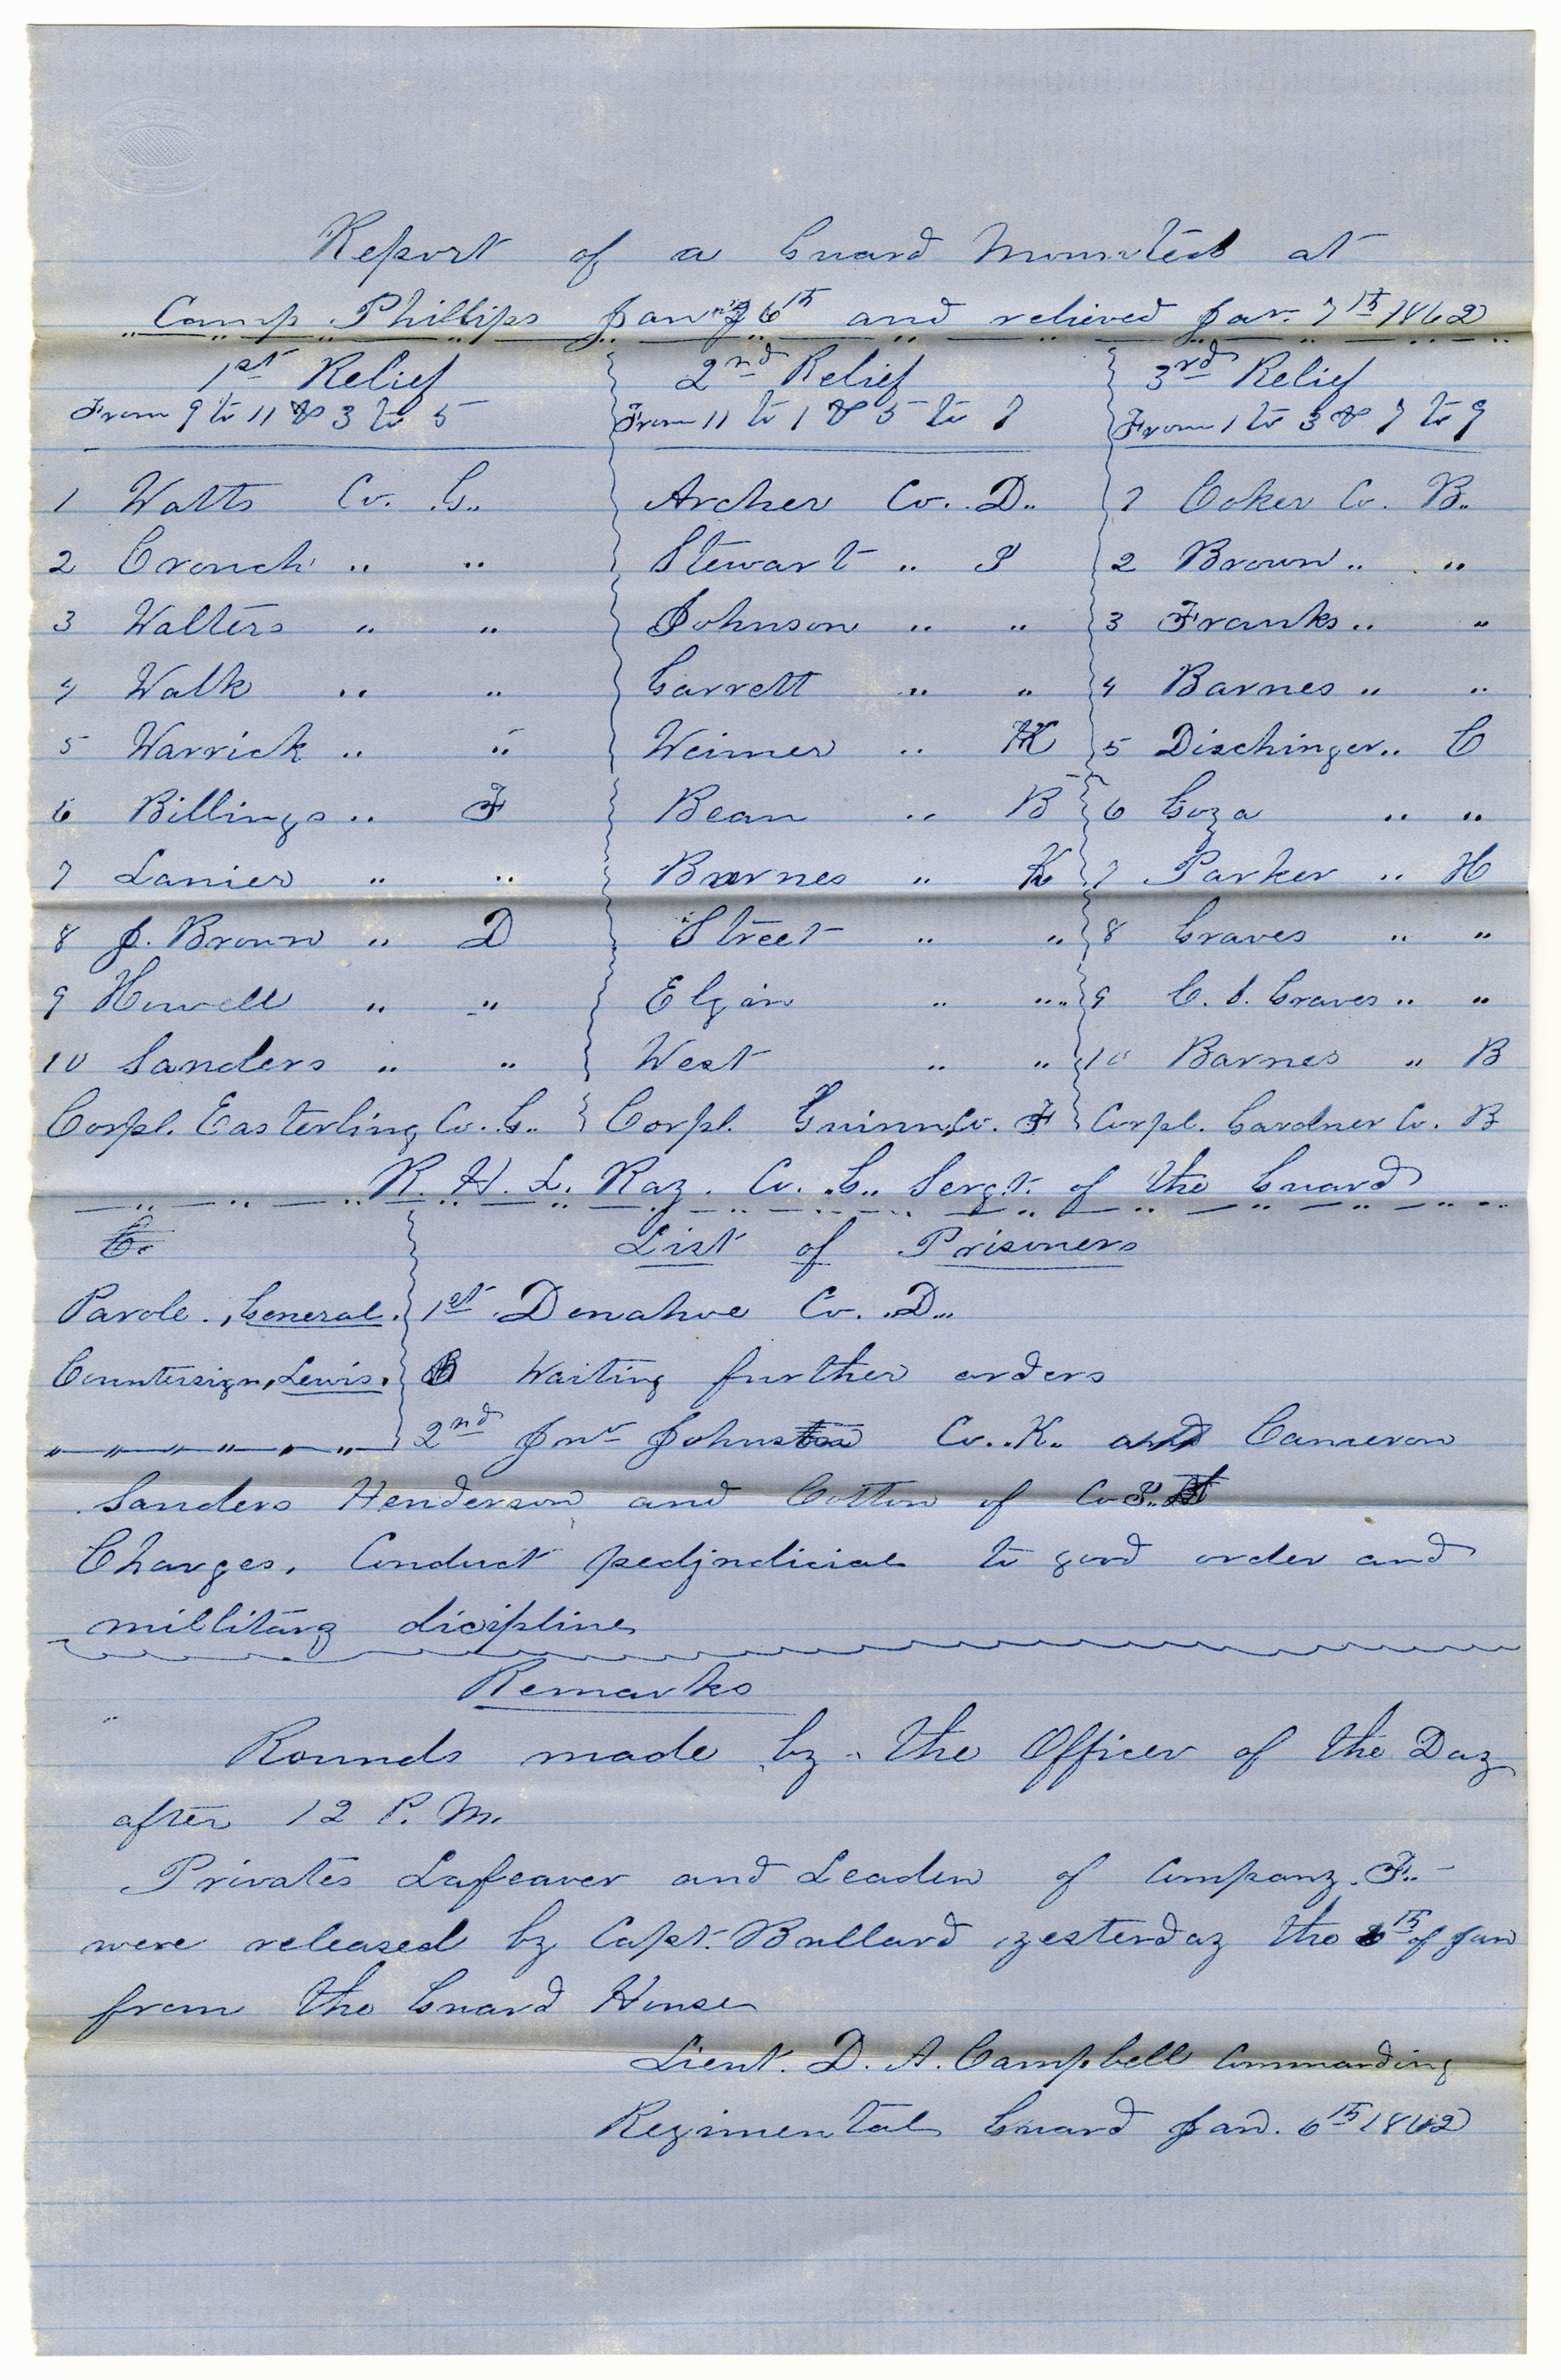 Report of a Guard Mounted at
Camp Phillips Jany 6th and relieved Jan. 7th 1862
1st Relief 2nd Relief 3rd Relief
From 9 to 11 & 3 to 5 From 11 to 1 & 5 to 7 From 1 to 3 & 7 to 9
1 Watts Co. G.. Archer Co. D.. 1 Coker Co. B..
2 Cronch .. .. Stewart .. I 2 Brown .. ..
3 Walters .. .. Johnson .. .. 3 Franks .. ..
4 Walk .. .. Garrett .. .. 4 Barnes .. ..
5 Warrick .. .. Weimer .. K 5 Dischinger .. C
6 Billings .. F Bean .. B 6 Goza .. ..
7 Lanier .. .. Barnes .. K 7 Parker .. H
8 J. Brown .. D Street .. .. 8 Graves .. ..
9 Howell .. .. Elgin .. .. 9 C. S. Graves .. ..
10 Sanders .. .. West .. .. 10 Barnes .. B
Corpl. Easterling Co. G.. Corpl. Guinn Co. F Corpl. Gardner Co. B
R. H. L. Ray. Co. G.. Sergt. of the Guard
List of Prisoners
Parole., General. 1st Donahoe Co. D..
Countersign, Lewis. Waiting further orders
2nd Jno Johnston Co. K.. and Cameron
Sanders Henderson and Cotton of Co I..
Charges, Conduct pedjudicial to good order and
millitary dicipline
Remarks
Rounds made by the Officer of the Day
after 12 P. M.
Privates Lafeaver and Leaden of Company F..
were released by Capt. Bullard yesterday the 6th of Jan
from the Guard House
Lieut. D. A. Campbell Commanding
Regimental Guard Jan. 6th 1862